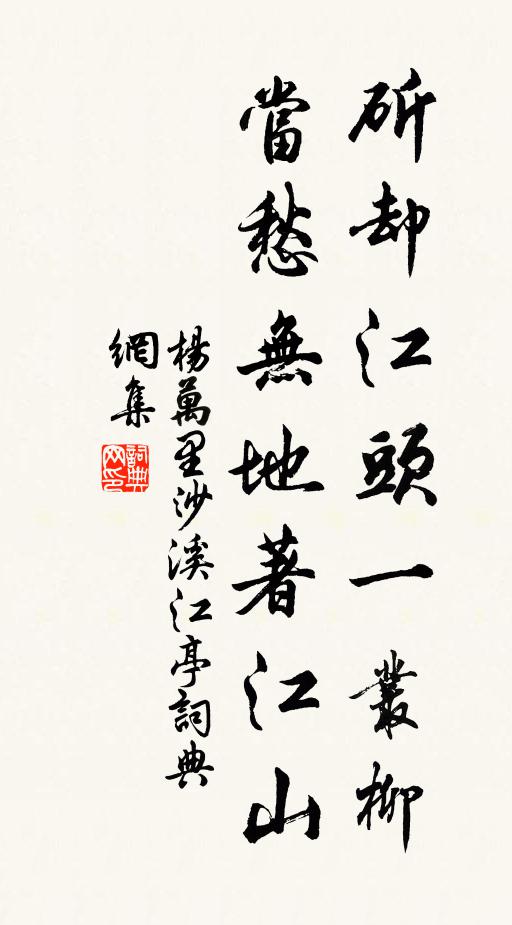 斫却江頭一叢柳
當愁無地著江山
楊萬里沙溪江亭詞典
網集
詞典
网印